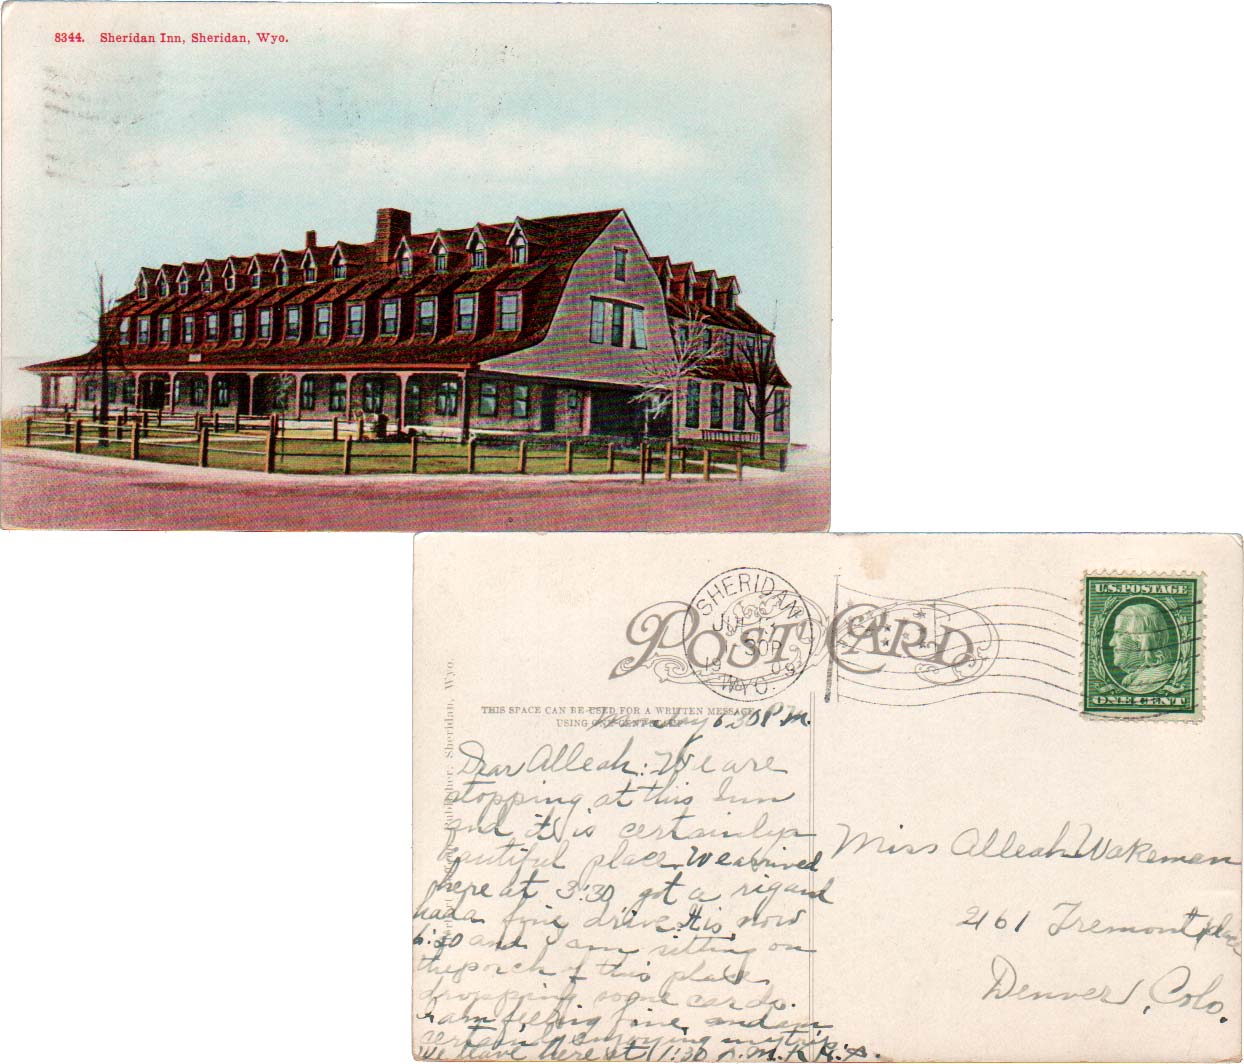 8344. Sheridan Inn, Sheridan, Wyo.
POST CARD
SHERIDAN
JUL
30P
1909
WYO.
U.S. POSTAGE
ONE CENT
THIS SPACE CAN BE USED FOR A WRITTEN MESSAGE
USING ONE CENT STAMP
Publisher, Sheridan, Wyo.
Sunday 6:30 P.M.
Dear Alleah: We are
stopping at this Inn
and it is certainly a
beautiful place. We arrived
here at 3:30 got a rig and
had a fine drive. It is now
6:30 and I am sitting on
the porch of this place
dropping some cards.
I am feeling fine and am
certainly enjoying my trip
We leave here at 11:30 P.M. K.H.A.
Miss Alleah Wakeman
2161 Tremont Place
Denver, Colo.